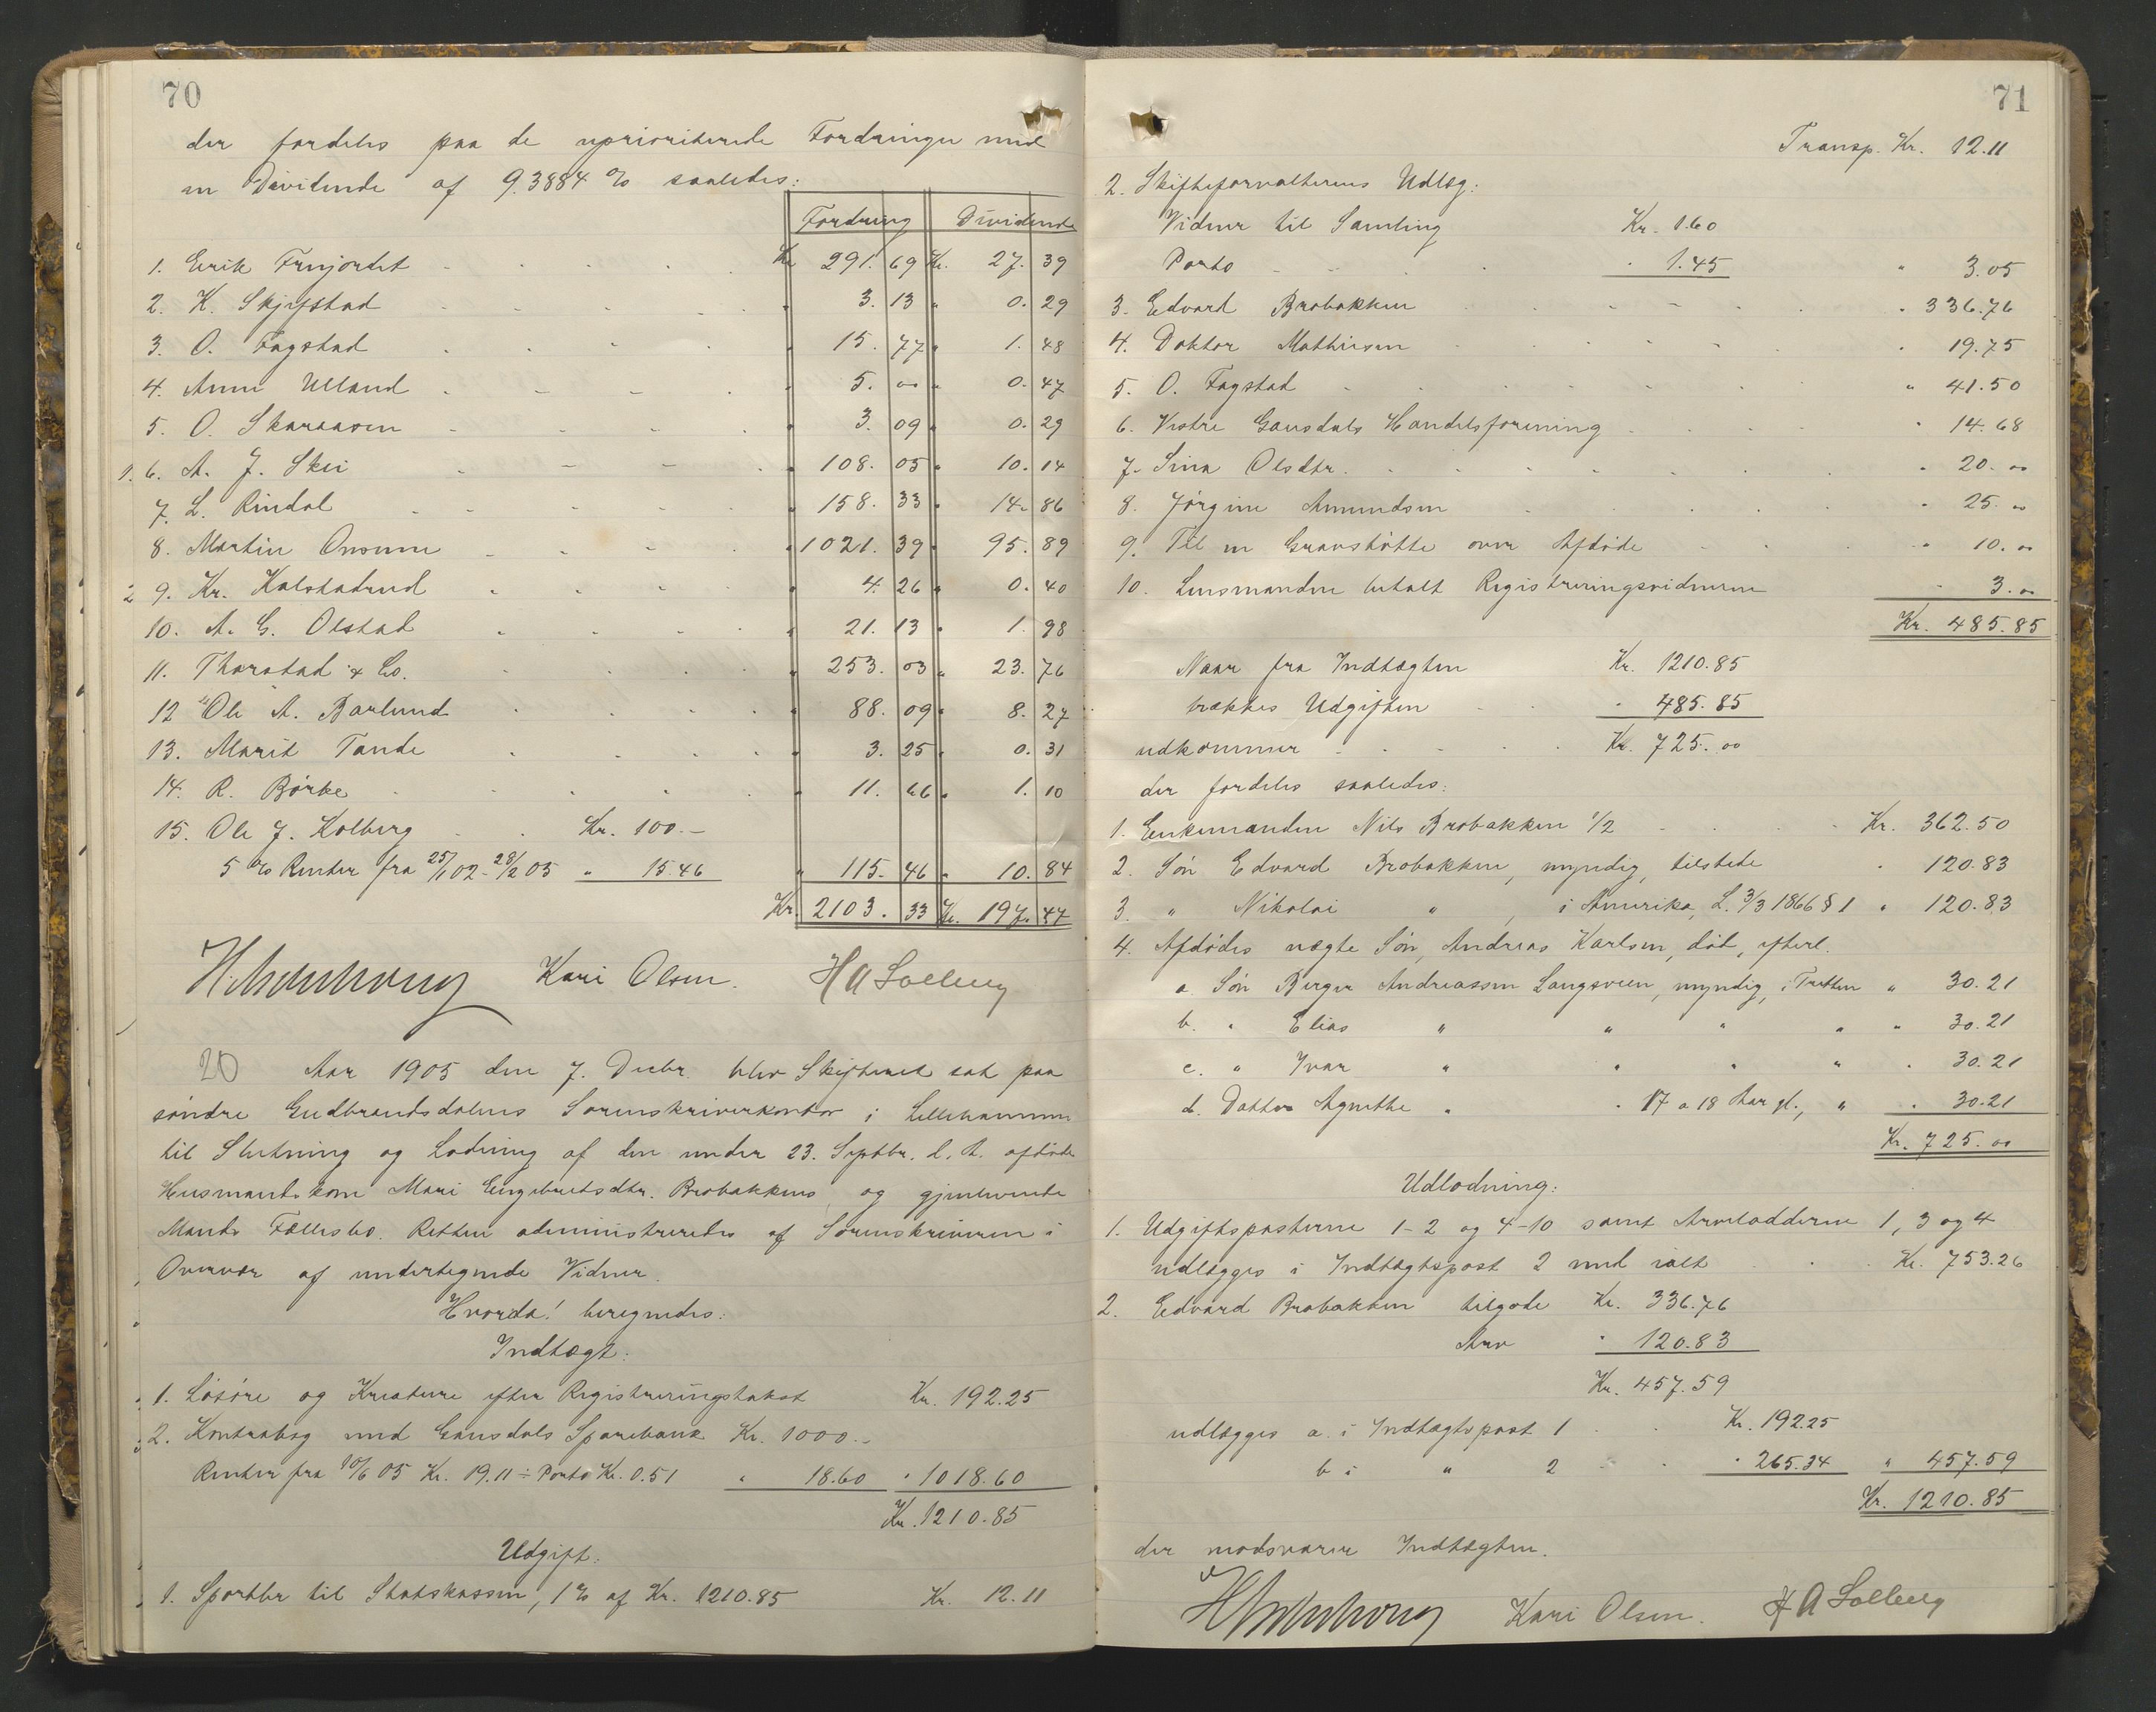 70
der fordeles paa de uprioriterede Fordringer med
en Dividende af 9.3884 % saaledes:
Fordring Dividende
1. Eerik Frujordet Kr. 291.69 Kr. 27.39
2. K. Skjefstad " 3.13 " 0.29
3. O. Fagstad " 15.77 " 1.48
4. Anne Ulland " 5.00 " 0.47
5. O. Skaraasen " 3.09 " 0.29
1. 6. A. J. Skei " 108.05 " 10.14
7. L. Rindal " 158.33 " 14.86
8. Martin Onsum " 1021.39 " 95.89
2 9. Kr. Kalstadrud " 4.26 " 0.40
10. A. G. Olstad " 21.13 " 1.98
11. Thorstad & Co. " 253.03 " 23.76
12 Ole A. Barlund " 88.09 " 8.27
13. Marit Tande " 3.25 " 0.31
14. R. Börke " 11.66 " 1.10
15. Ole J. Kolberg Kr. 100.–
5 % Renter fra 25/1 02–28/2 05 " 15.46 " 115.46 " 10.84
Kr. 2103.33 Kr. 197.47
Kari Olsen. H A Solberg
20 Aar 1905 den 7. Decbr. blev Skifteret sat paa
söndre Gudbrandsdalens Sorenskriverkontor i Lillehammer
til Slutning og Lodning af den under 23. Septbr. d. A. afdöde
Husmandskone Mari Engebretsdtr. Brobakkens og gjenlevende
Mands Fællesbo. Retten administreredes af Sorenskriveren i
Overvær af undertegnede Vidner.
Hvorda! beregnedes:
Indtægt:
1. Lösöre og Kreature efter Registreringstakst Kr. 192.25
2. Kontrabog med Gausdals Sparebank Kr. 1000.–
Renter fra 10/6 05 Kr. 19.11 ÷ Porto Kr. 0.51 " 18.60 " 1018.60
Kr. 1210.85
Udgift:
1. Sportler til Statskassen, 1 % af Kr. 1210.85 Kr. 12.11
71
Transp. Kr. 12.11
2. Skifteforvalterens Udlæg:
Vidner til Samling Kr. 1.60
Porto " 1.45 " 3.05
3. Edvard Brobakken " 336.76
4. Doktor Mathiesen " 19.75
5. O. Fagstad " 41.50
6. Vestre Gausdals Handelsforening " 14.68
7. Sina Olsdtr. " 20.00
8. Jörgine Amundsen " 25.00
9. Til en Gravstötte over Afdöde " 10.00
10. Lensmanden betalt Registreringsvidnerne " 3.00
Kr. 485.85
Naar fra Indtægten Kr. 1210.85
trækkes Udgiften " 485.85
udkommer Kr. 725.00
der fordeles saaledes:
1. Enkemanden Nils Brobakken 1/2 Kr. 362.50
2. Sön Edvard Brobakken, myndig, tilstede " 120.83
3. " Nikolai " , i Amerika, L. 3/3 1866 § 1 " 120.83
4. Afdödes uægte Sön, Andreas Karlsen, död, efterl.
a. Sön Birger Andreassen Langsveen, myndig, i Tretten " 30.21
b. " Elias " " " " " 30.21
c. " Ivar " " " " " 30.21
d. Datter Agnethe " " 17 a 18 Aar gl., " " 30.21
Kr. 725.00
Udlodning:
1. Udgiftsposterne 1–2 og 4–10 samt Arvelodderne 1, 3 og 4
udlægges i Indtægtspost 2 med ialt Kr. 753.26
2. Edvard Brobakken tilgode Kr. 336.76
Arv " 120.83
Kr. 457.59
udlægges a. i Indtægtspost 1 Kr. 192.25
b i " 2 " 265.34 " 457.59
Kr. 1210.85
der modsvarer Indtægten.
Kari Olsen. H A Solberg